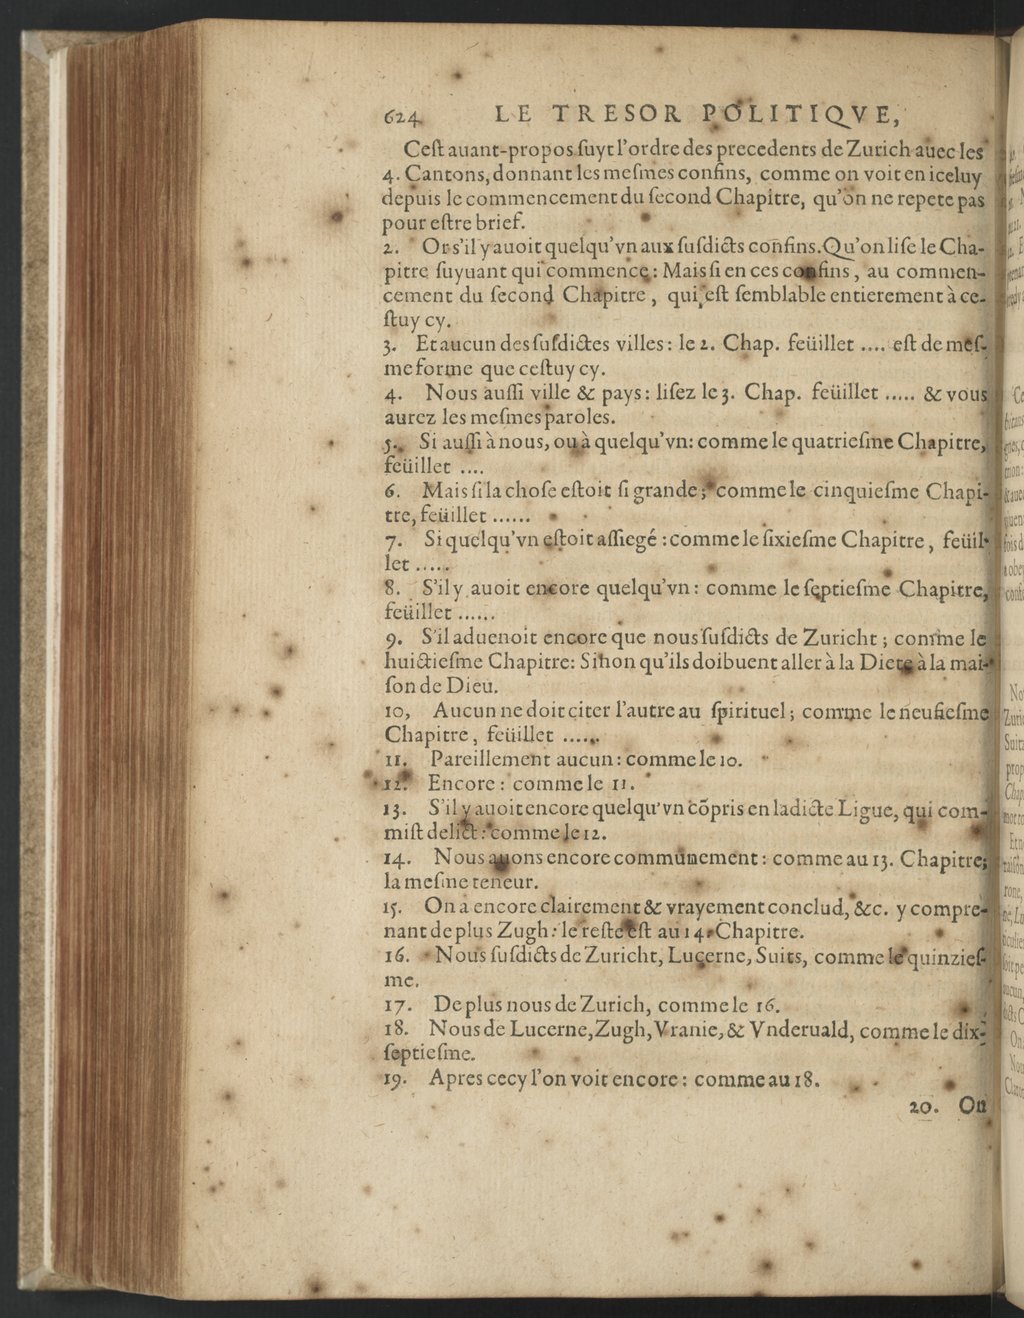 624 LE TRESOR POLITIQVE,
Ceſt auant-propos ſuyt l'ordre des precedents de Zurich auec les
4. Cantons, donnant les meſmes confins, comme on voit en iceluy
depuis le commencement du ſecond Chapitre, qu'on ne repete pas
pour eſtre brief.
2. Or s'il y auoit quelqu'vn aux ſuſdicts confins. Qu'on liſe le Cha-
pitre ſuyuant qui commence: Mais ſi en ces confins, au commen-
cement du ſecond Chapitre, qui eſt ſemblable entierement à ce-
ſtuy cy.
3. Et aucun des ſuſdictes villes: le 2. Chap. feüillet .... eſt de meſ-
me forme que ceſtuy cy.
4. Nous auſſi ville & pays: liſez le 3. Chap. feüillet ..... & vous
aurez les meſmes paroles.
5. Si auſſi à nous, ou à quelqu'vn: comme le quatrieſme Chapitre,
feüillet ....
6. Mais ſi la choſe eſtoit ſi grande; comme le cinquieſme Chapi-
tre, feüillet ......
7. Si quelqu'vn eſtoit aſſiegé: comme le ſixieſme Chapitre, feüil-
let .....
8. S'il y auoit encore quelqu'vn: comme le ſeptieſme Chapitre,
feüillet ......
9. S'il aduenoit encore que nous ſuſdicts de Zuricht; comme le
huictieſme Chapitre: Sinon qu'ils doibuent aller à la Diete à la mai-
ſon de Dieu.
10, Aucun ne doit citer l'autre au ſpirituel; comme le neufieſme
Chapitre, feüillet ......
11. Pareillement aucun: comme le 10.
12. Encore: comme le 11.
13. S'il y auoit encore quelqu'vn cõpris en ladicte Ligue, qui com-
miſt delict: comme le 12.
14. Nous auons encore communement: comme au 13. Chapitre;
la meſme teneur.
15. On a encore clairement & vrayement conclud, &c. y compre-
nant de plus Zugh: le reſte eſt au 14. Chapitre.
16. Nous ſuſdicts de Zuricht, Lucerne, Suits, comme le quinzieſ-
me.
17. De plus nous de Zurich, comme le 16.
18. Nous de Lucerne, Zugh, Vranie, & Vnderuald, comme le dix-
ſeptieſme.
19. Apres cecy l'on voit encore: comme au 18.
20. On